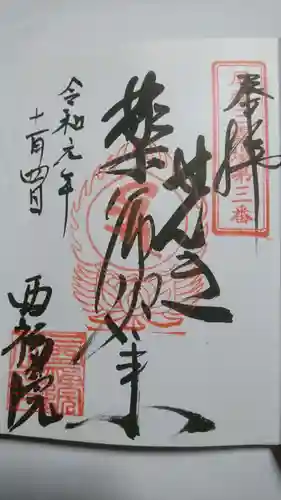 奉拝
第三番
せんき
薬師如来
令和元年
十一月四日
西福院